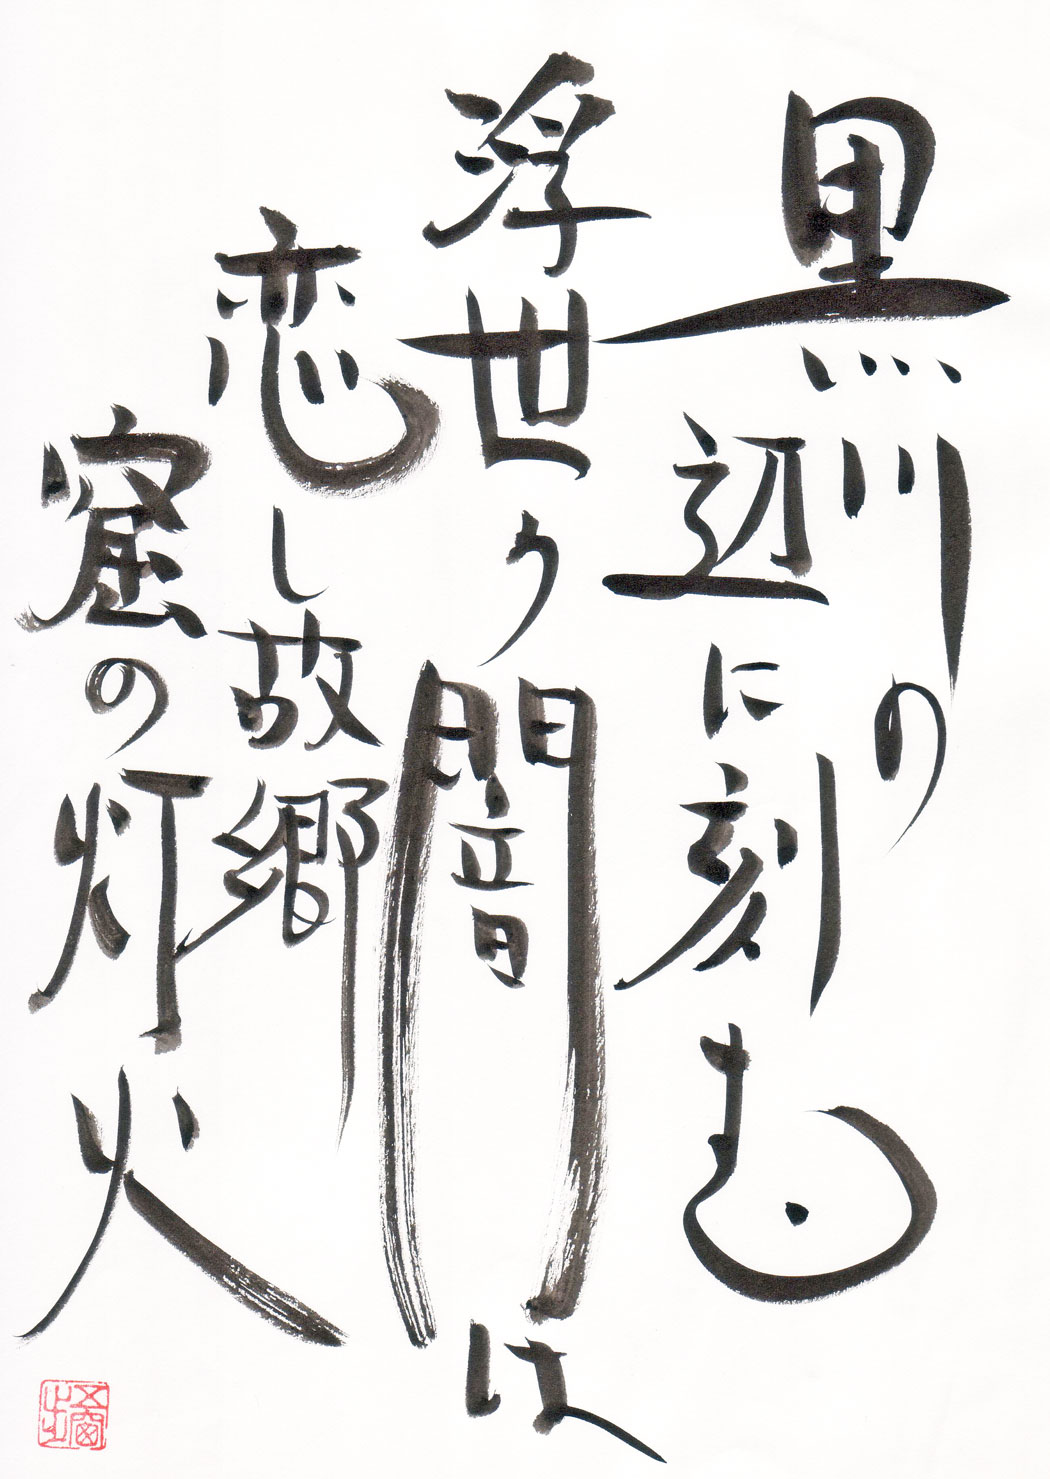 黒川の
辺に刻む
浮世う闇は
恋し故郷
窟の灯火